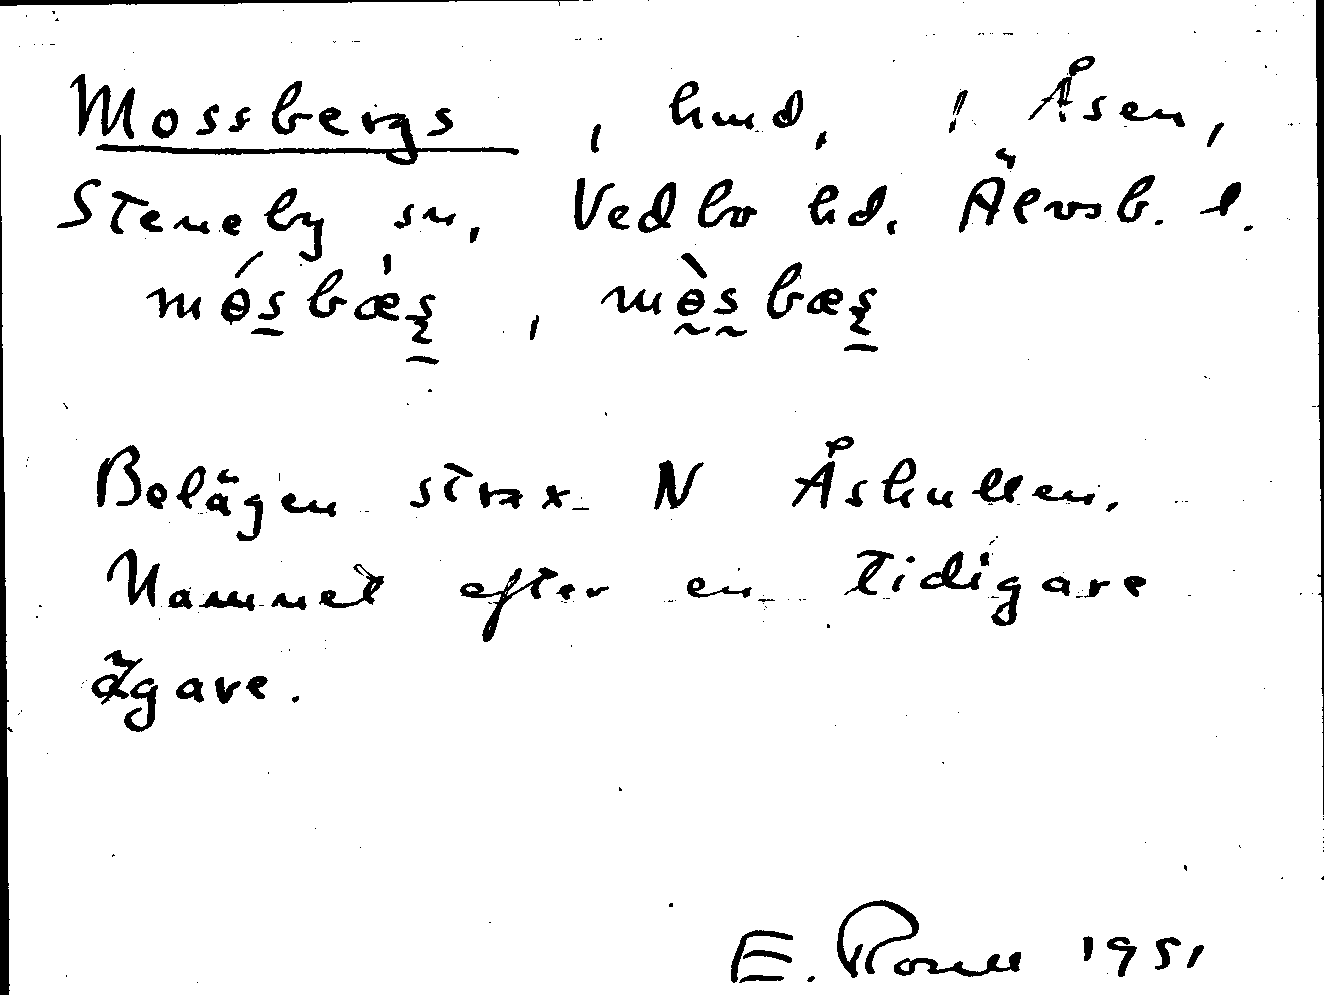 Mossbergs, hmd, i Åsen,
Steneby sn, Vedbo hd. Älvsb. l.
mɵ́sbæ̀ʂ, mɵ̀sbæʂ
Belägen strax N Åskullen.
Namnet efter en tidigare
ägare.
E. 1951